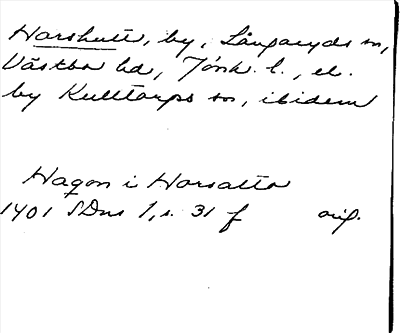 Harshult, by, Långaryds sn,
Västbo hd, Jönk. l., el.
by Kulltorps sn, ibidem
Haqon i Horsatto
1401 SDns 1, s. 31 f orig.